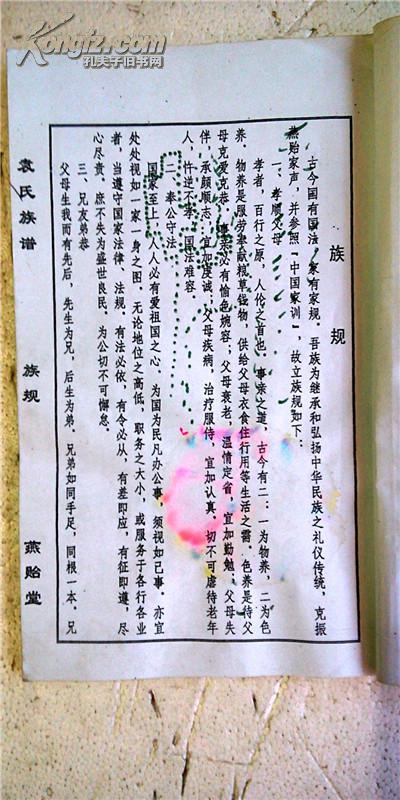 Kongfz.com
孔夫子旧书网
族规
古今国有国法，家有家规。吾族为继承和弘扬中华民族之礼仪传统，克振
燕贻家声，并参照『中国家训』，故立族规如下：
一、孝顺父母
孝者，百行之原，人伦之首也。事亲之道，古今有二：一为物养，二为色
养。物养是服劳奉献粮草钱物，供给父母衣食住行用等生活之需。色养是待父
母克爱克恭，事亲必有愉色婉容；父母衰老，温情定省，宜加勤勉；父母失
伴，承颜顺志，宜加虔诚；父母疾病，治疗服侍，宜加认真。切不可虐待老年
人，忤逆不孝，国法难容。
二、奉公守法
国家至上，人人必有爱祖国之心，为国为民凡办公事，须视如己事。亦宜
处处视如一家一身之图，无论地位之高低，职务之大小，或服务于各行各业
者，当遵守国家法律、法规。有法必依，有令必从，有差即应，有征即遵，尽
心尽责，庶不失为盛世良民。为公切不可懈怠。
三、兄友弟恭
父母生我而有先后，先生为兄，后生为弟，兄弟如同手足，同根一本。兄
袁氏族谱
族规
燕贻堂